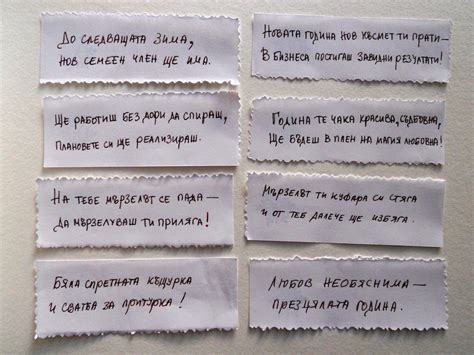 До следващата зима,
нов семеен член ще има.
Ще работиш без дори да спираш,
плановете си ще реализираш.
На тебе мързелът се пада –
да мързелуваш ти приляга!
Бяла спретната къщурка
и сватба за притурка!
Новата година нов късмет ти прати –
в бизнеса постигаш завидни резултати!
Година те чака красива, съдбовна,
ще бъдеш в плен на магия любовна!
Мързелът ти куфара си стяга
и от теб далече ще избяга.
Любов необяснима –
презцялата година.